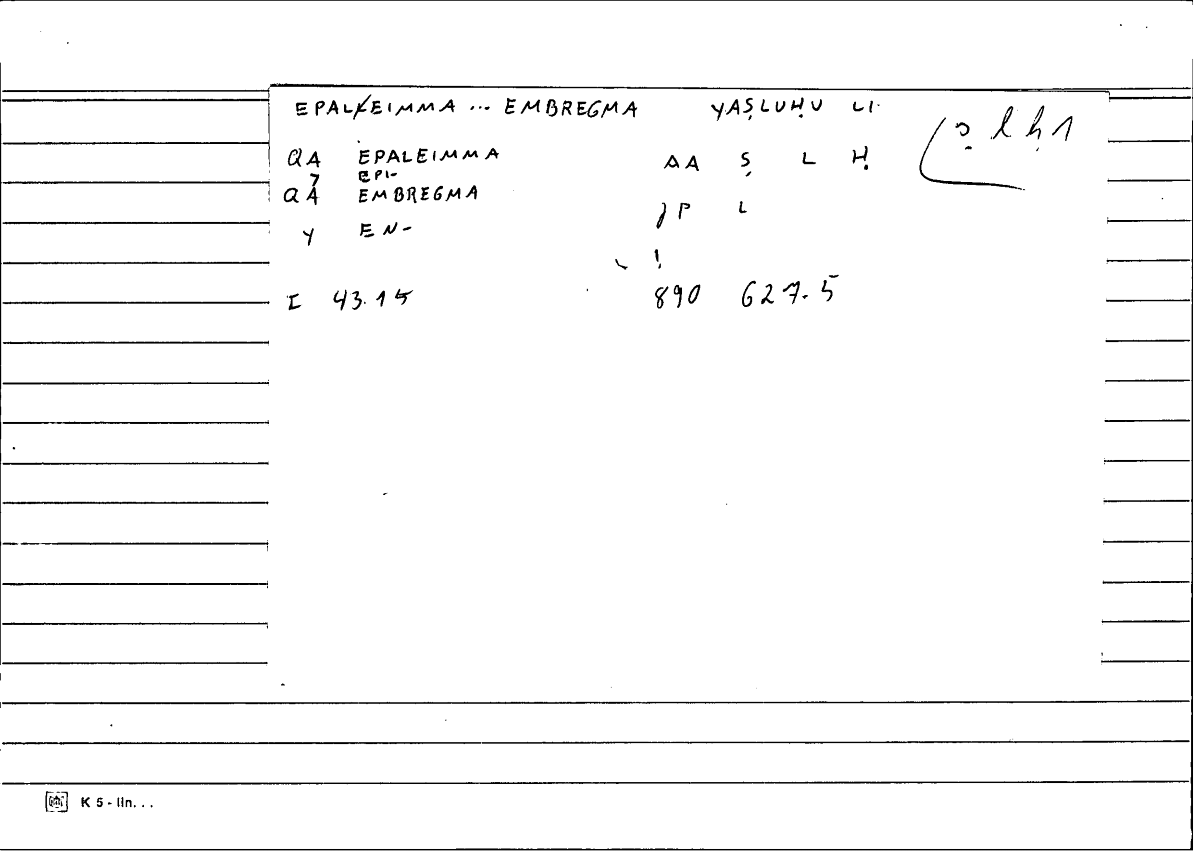 EPALEIMMA ... EMBREGMA YAṢLUḤU LI
ṣ lḥ 1
QA EPALEIMMA AA Ṣ L Ḥ
7 EPI-
QA EMBREGMA
JP L
Y EN-
!
I 43.15 890 627.5
K 5 - lin. . .